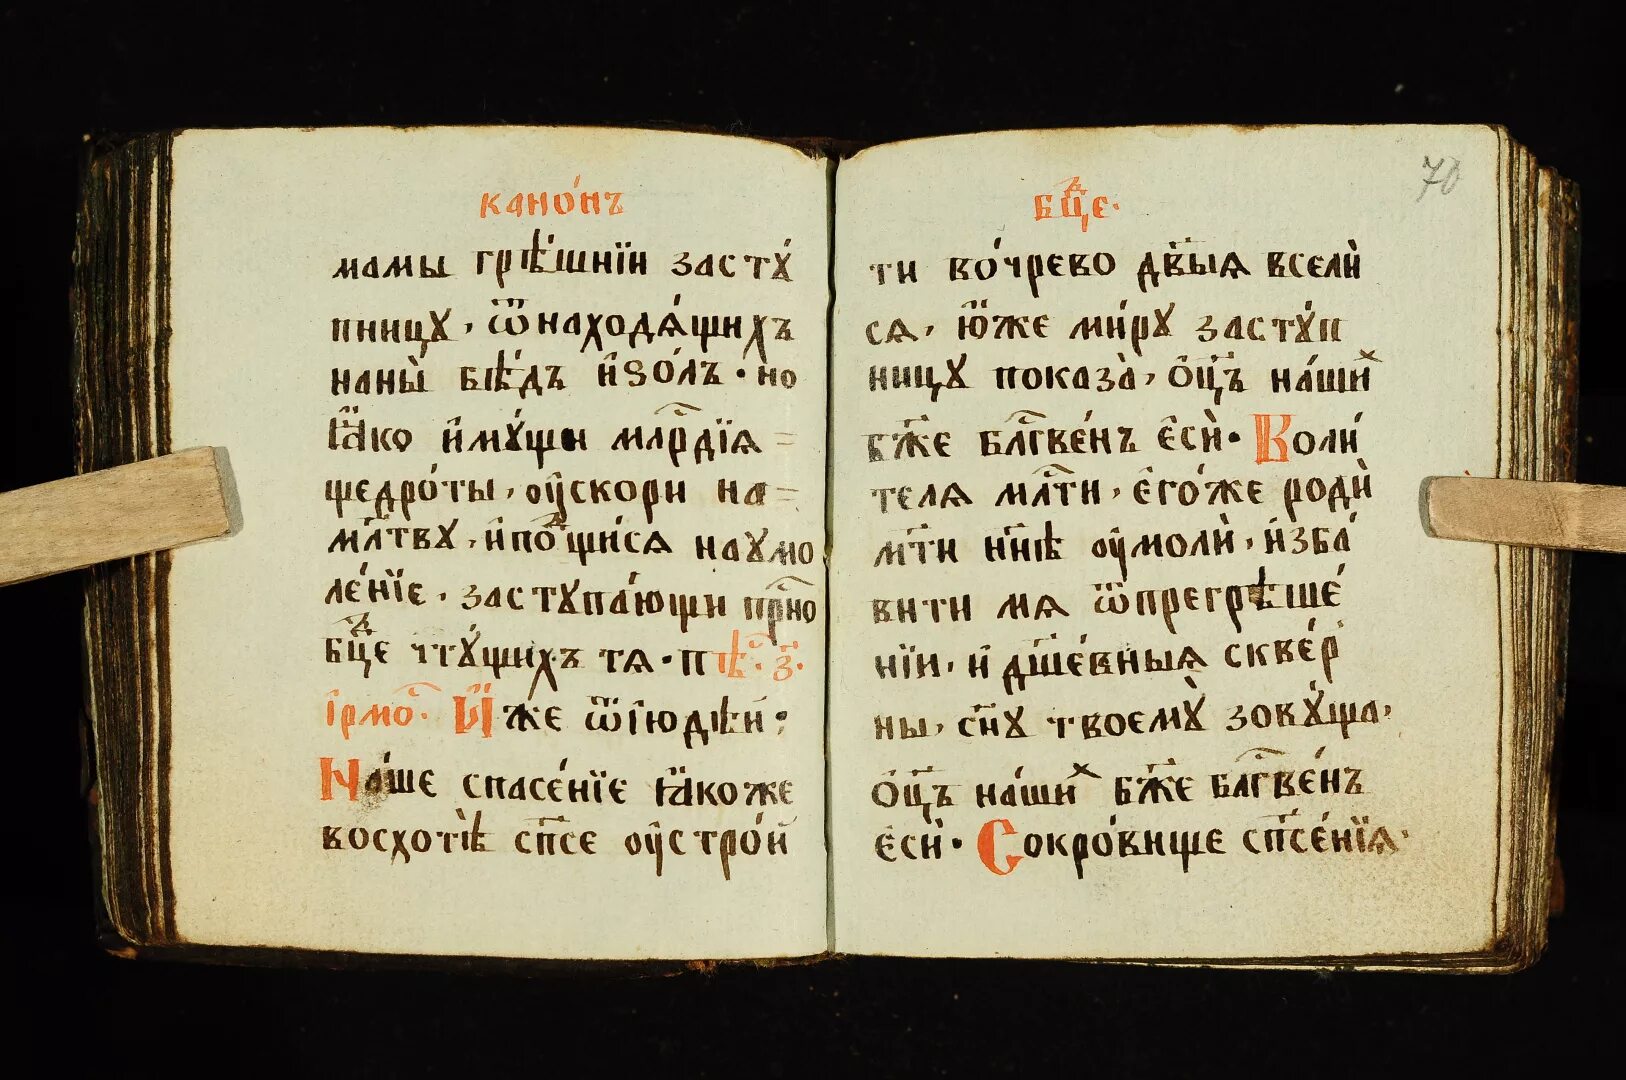 кано́нъ
мамы грѣ́шнїи засту́
пницу, ѿнаходѧ́щихъ
наны̀ бѣ́дъ и҆ѕо́лъ. но
ꙗ҆́ко и҆му́щи млⷭ҇рдїѧ
щедро́ты, оу҆скори на
мл҃тву, и҆поⷨ҇щи́сѧ наумо
ле́нїе, заступа́ющи прⷭ҇но
бцⷣе чту́щихъ тѧ. пѣⷭ҇. з҃.
і҆рмоⷭ҇. И҆́же ѿі҆юдѣ́и;
На́ше спасе́нїе ꙗ҆́коже
восхотѣ̀ сп҃се оу҆стро́и
бцⷣе. 70
ти во́чрево дв҃ыѧ вселѝ
сѧ, ю҆́же ми́ру засту́п
ницу показа̀, ѻ҆ц҃ъ на́шиⷯ
бж҃е блⷭ҇ве́нъ є҆сѝ. Воли́
телѧ млⷭ҇ти, є҆го́же родѝ
мт҃и нн҃ѣ оу҆молѝ, и҆зба́
вити мѧ ѿпрегрѣше́
нїи, и҆ дш҃е́вныѧ скве́р
ны, сн҃у твоему̀ зову́ща,
ѻ҆ц҃ъ на́шиⷯ бж҃е блⷭ҇ве́нъ
є҆сѝ. Сокро́вище сп҃се́нїѧ.